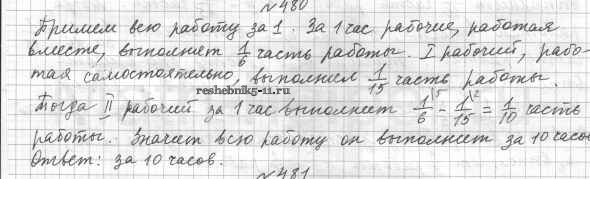 №480
Примем всю работу за 1. За 1 час рабочие, работая
вместе, выполняет 1/6 часть работы. I рабочий, рабо-
тая самостоятельно, выполнил 1/15 часть работы.
reshebnik5-11.ru
Тогда II рабочий за 1 час выполняет 1/6\5 - 1/15\2 = 1/10 часть
работы. Значит всю работу он выполняет за 10 часов
Ответ: за 10 часов.
№481